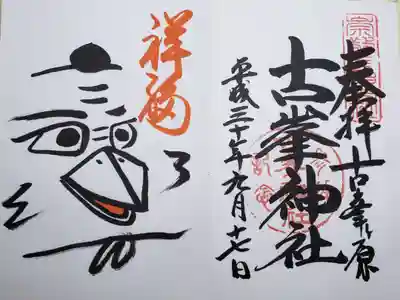 奉拝 古峯ヶ原
古峯神社
平成三十年九月十七日
祥福